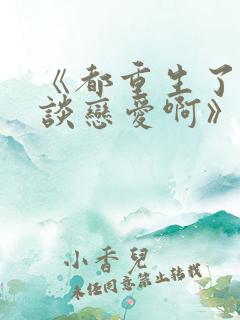 《都重生了
談戀愛啊》
小香兒
未經同意禁止轉載